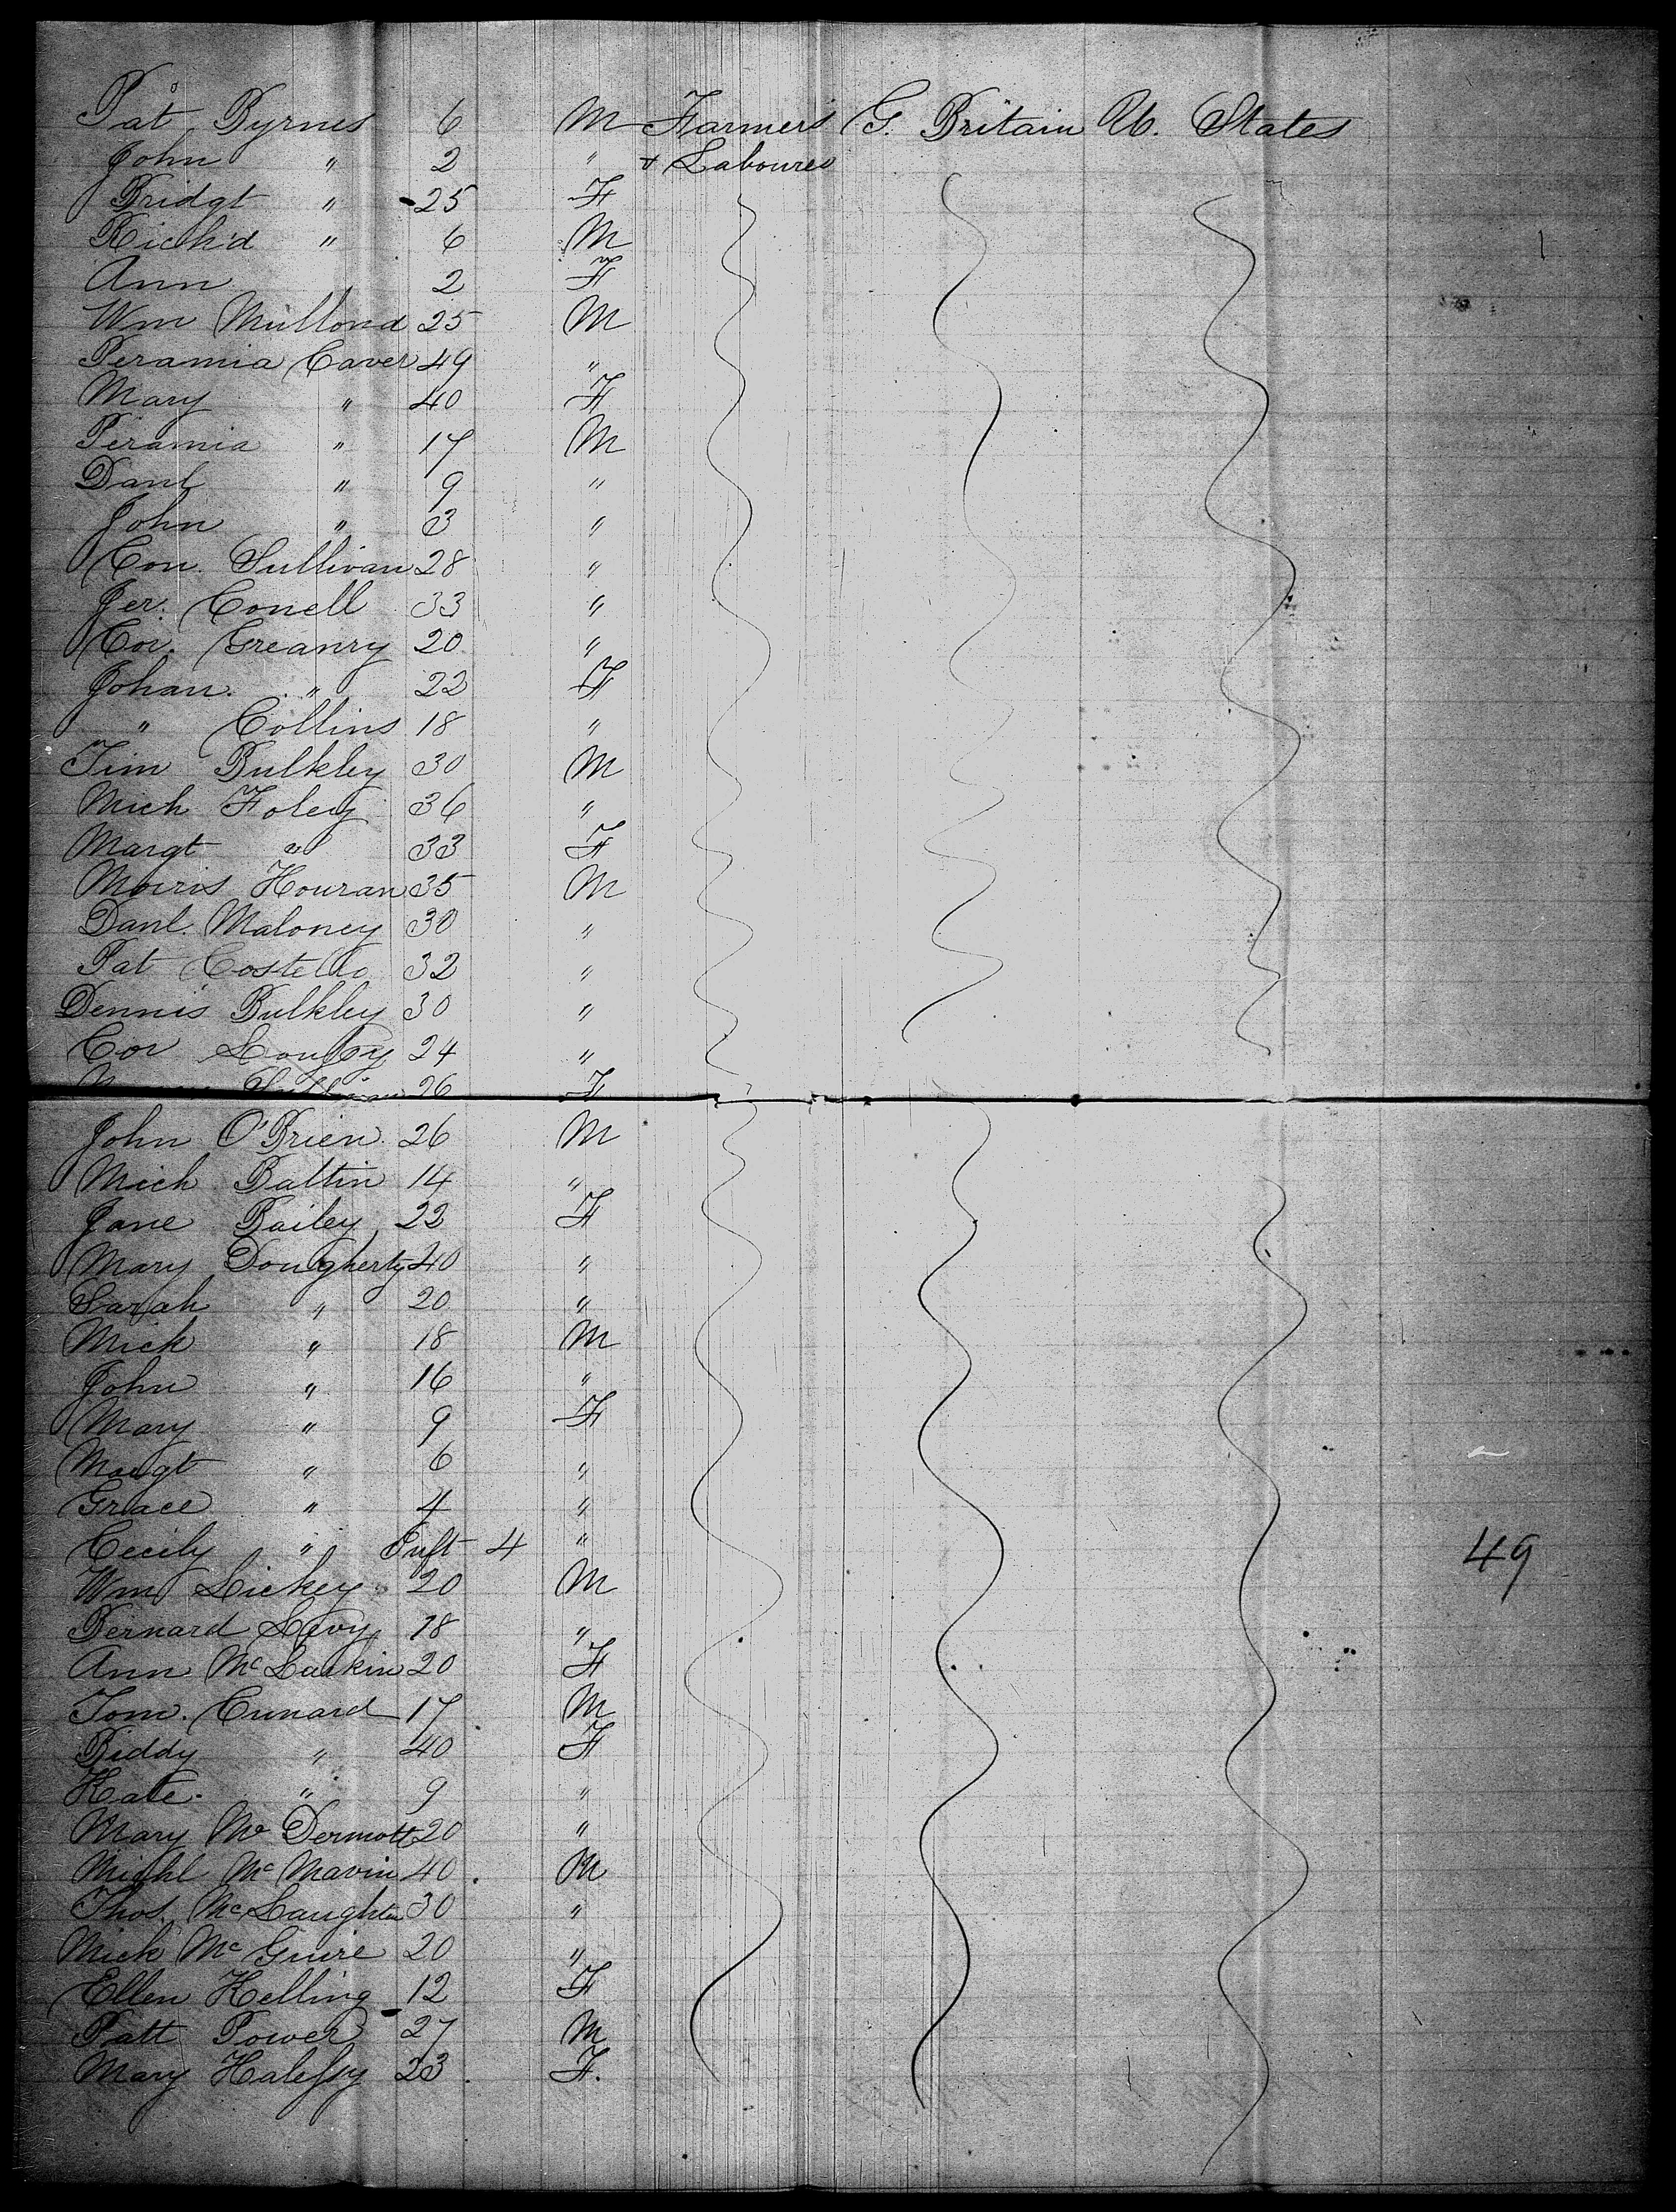 Pat Byrnes 6 M Farmers G. Britain U. States
John " 2 " & Laboures
Bridgt " 25 F
Rich'd " 6 M
Ann 2 F
Wm Mullond 25 M
Jeramia Caver 49 "
Mary " 40 F
Jeramia " 17 M
Danl " 9 "
John " 3 "
Con. Sullivan 28 "
Jer. Conell 33 "
Cor. Greanry 20 "
Johan. " 22 F
" Collins 18 "
Tim Bulkley 30 M
Mich Foley 36 "
Margt " 33 F
Morris Houran 35 M
Danl. Maloney 30 "
Pat Costello 32 "
Dennis Bulkley 30 "
Cor 24 "
Sullivan 26 F
John O'Brien 26 M
Mich Battin 14 "
Jane Bailey 22 F
Mary Dougherty 40 "
Sarah " 20 "
Mick " 18 M
John " 16 "
Mary " 9 F
Margt " 6 "
Grace " 4 "
Cecily " Inft 4 "
Wm Lickey 20 M
Bernard Lavy 18 "
Ann Mc Larkin 20 F
Tom. Cunard 17 M
Biddy " 40 F
Kate. " 9 "
Mary Mc Dermott 20 "
Michl Mc Mavin 40. M
Thos. McLaughlin 30 "
Mick Mc Guire 20 "
Ellen Kelling 12 F
Patt Power 27 M
Mary Halessy 23. F.
49